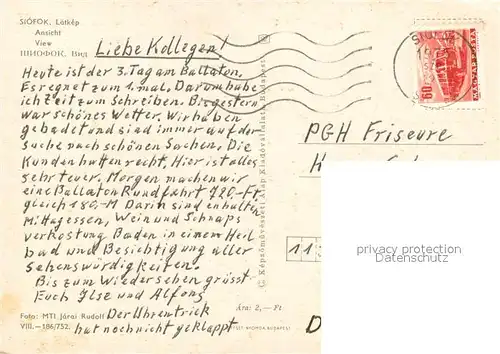 SIÓFOK. Látkép
Ansicht
View
ШИОФОК. Вид
Liebe Kollegen!
Heute ist der 3. Tag am Ballaton.
Es regnet zum 1. mal. Darum habe
ich Zeit zum Schreiben. Bis gestern
war schönes Wetter. Wir haben
gebadet und sind immer auf der
Suche nach schönen Sachen. Die
Kunden hatten recht. Hier ist alles
sehr teuer. Morgen machen wir
eine Ballaton Rundfahrt 720,-Ft.
gleich 180,-M Darin sind enthalten
Mittagessen, Wein und Schnaps
verkostung Baden in einem Heil
bad und Besichtigung aller
Sehenswürdigkeiten.
Bis zum Wiedersehen grüsst
Euch Ilse und Alfons
Der Uhrentrick
hat noch nicht geklappt
Foto: MTI Járai Rudolf
VIII.—186/752.
Ára: 2,— Ft
OFFSET NYOMDA BUDAPEST
© Képzőművészeti Alap Kiadóvállalata, Budapest
SIÓFOK
60
MAGYAR POSTA
PGH Friseure
H
113
D
privacy protection
Datenschutz